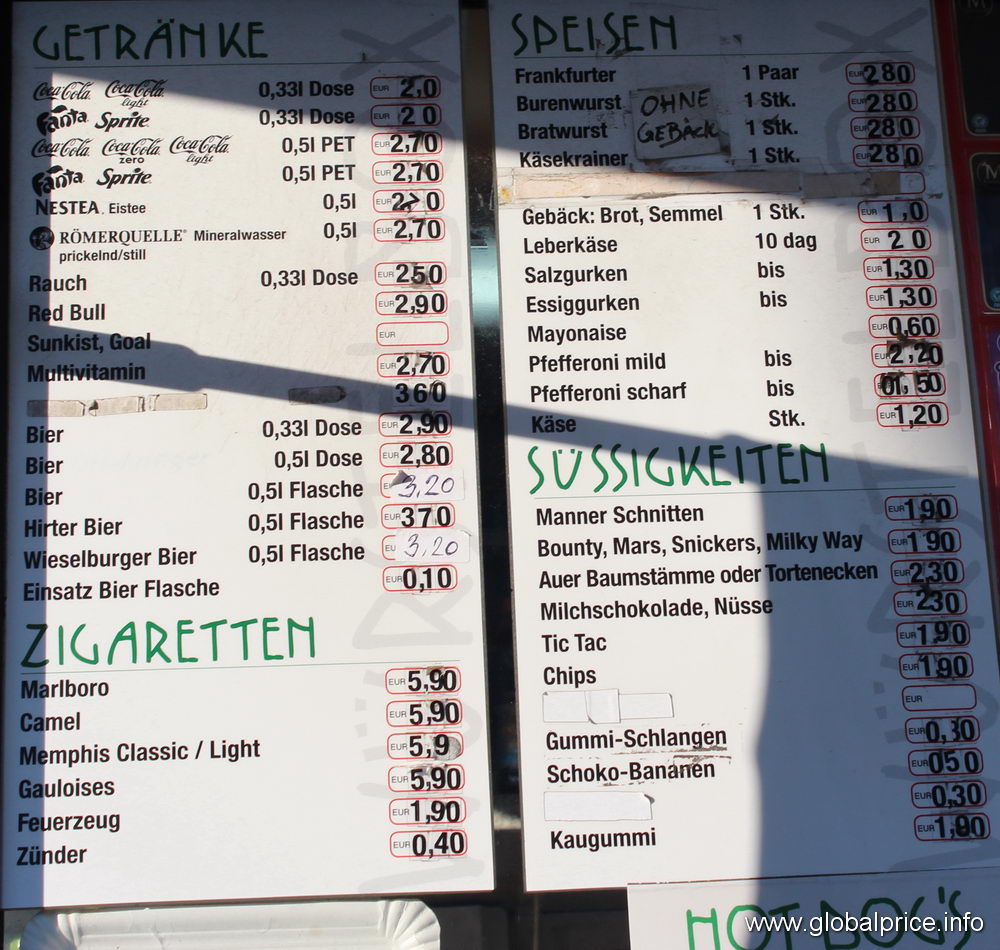 GETRÄNKE
Coca-Cola Coca-Cola light 0,33l Dose EUR 2,0
Fanta Sprite 0,33l Dose EUR 2 0
Coca-Cola Coca-Cola zero Coca-Cola light 0,5l PET EUR 2,70
Fanta Sprite 0,5l PET EUR 2,70
NESTEA Eistee 0,5l EUR
RÖMERQUELLE Mineralwasser 0,5l EUR 2,70
prickelnd/still
Rauch 0,33l Dose EUR 250
Red Bull EUR 2,90
Sunkist, Goal EUR
Multivitamin 2,70
360
Bier 0,33l Dose EUR 2,90
Bier 0,5l Dose EUR 2,80
Bier 0,5l Flasche 3,20
Hirter Bier 0,5l Flasche EUR 370
Wieselburger Bier 0,5l Flasche EU 3,20
Einsatz Bier Flasche EUR 0,10
ZIGARETTEN
Marlboro EUR 5,90
Camel EUR 5,90
Memphis Classic / Light EUR 5,9
Gauloises EUR 5,90
Feuerzeug EUR 1,90
Zünder EUR 0,40
SPEISEN
Frankfurter 1 Paar EUR 280
Burenwurst 1 Stk. EUR 280
OHNE
GEBÄCK
Bratwurst 1 Stk. EUR 280
Käsekrainer 1 Stk. EUR 28 0
Gebäck: Brot, Semmel 1 Stk. EUR 1,0
Leberkäse 10 dag EUR 2 0
Salzgurken bis EUR 1,30
Essiggurken bis EUR 1,30
Mayonaise EUR 0,60
Pfefferoni mild bis EUR 2,20
Pfefferoni scharf bis
Käse Stk. EUR 1,20
SÜSSIGKEITEN
Manner Schnitten EUR 1 90
Bounty, Mars, Snickers, Milky Way EUR 1 90
Auer Baumstämme oder Tortenecken EUR 2,30
Milchschokolade, Nüsse EUR 230
Tic Tac EUR 1,90
Chips EUR 1,90
EUR
Gummi-Schlangen EUR 0,30
Schoko-Bananen EUR 05 0
EUR 0,30
Kaugummi EUR 1,90
HOT DOG'S
www.globalprice.info